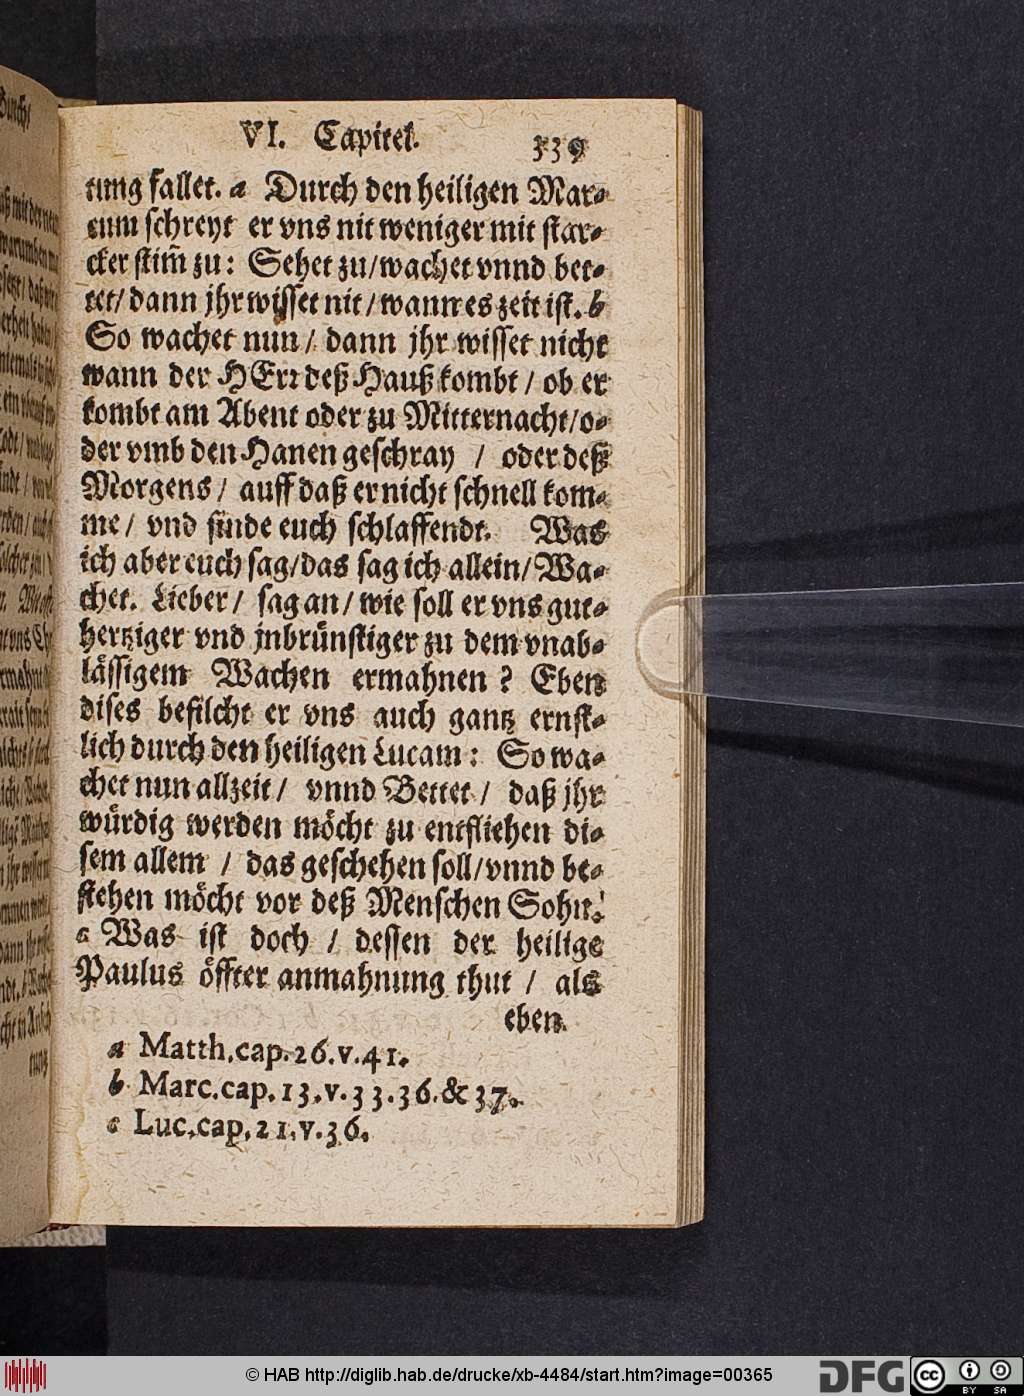 VI. Capitel. 339
tung fallet. a Durch den heiligen Mar-
cum schreyt er vns nit weniger mit star-
cker stim̃ zu: Sehet zu/wachet vnnd bet-
tet/ dann jhr wisset nit/wann es zeit ist. b
So wachet nun/ dann jhr wisset nicht
wann der HErr deß Hauß kombt / ob er
kombt am Abent oder zu Mitternacht/o-
der vmb den Hanen geschray / oder deß
Morgens/ auff daß er nicht schnell kom-
me/ vnd finde euch schlaffendt. Was
ich aber euch sag/das sag ich allein/Wa-
chet. Lieber/ sag an/ wie soll er vns gut-
hertziger vnd jnbrünstiger zu dem vnab-
lässigem Wachen ermahnen? Eben
dises befilcht er vns auch gantz ernst-
lich durch den heiligen Lucam: So wa-
chet nun allzeit/ vnnd Bettet/ daß jhr
würdig werden möcht zu entfliehen di-
sem allem / das geschehen soll/vnnd be-
stehen möcht vor deß Menschen Sohn.
c Was ist doch / dessen der heilige
Paulus öffter anmahnung thut / als
eben
a Matth.cap.26.v.41.
b Marc.cap.13.v.33.36.&37.
c Luc.cap.21.v.36.
© HAB http://diglib.hab.de/drucke/xb-4484/start.htm?image=00365
DFG
cc BY SA